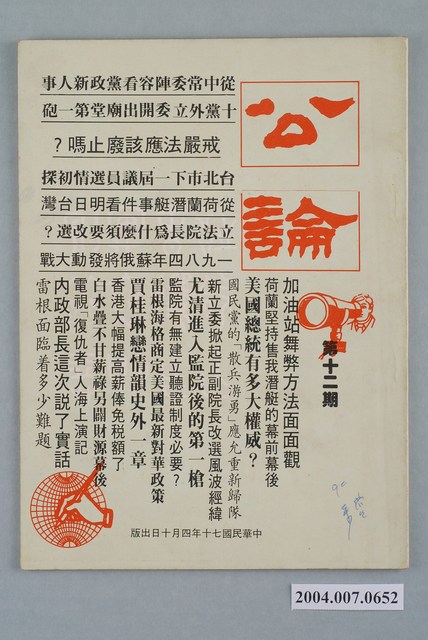 公論
第十二期
從中常委陣容看黨政新人事
十黨外立委開出廟堂第一砲
戒嚴法應該廢止嗎？
台北市下一屆議員選情初探
從荷蘭潛艇事件看明日台灣
立法院長為什麼須要改選？
一九八四年蘇俄將發動大戰
加油站舞弊方法面面觀
荷蘭堅持售我潛艇的幕前幕後
美國總統有多大權威？
國民黨的「散兵游勇」應允重新歸隊
新立委掀起正副院長改選風波經緯
尤清進入監院後的第一槍
監院有無建立聽證制度必要？
雷根海格商定美國最新對華政策
賈桂琳戀情韻史外一章
香港大幅提高薪俸免稅額了
白水疊不甘薪祿另闢財源幕後
電視「復仇者」人海上演記
內政部長這次說了實話
雷根面臨着多少難題
中華民國七十年四月十日出版
2004.007.0652